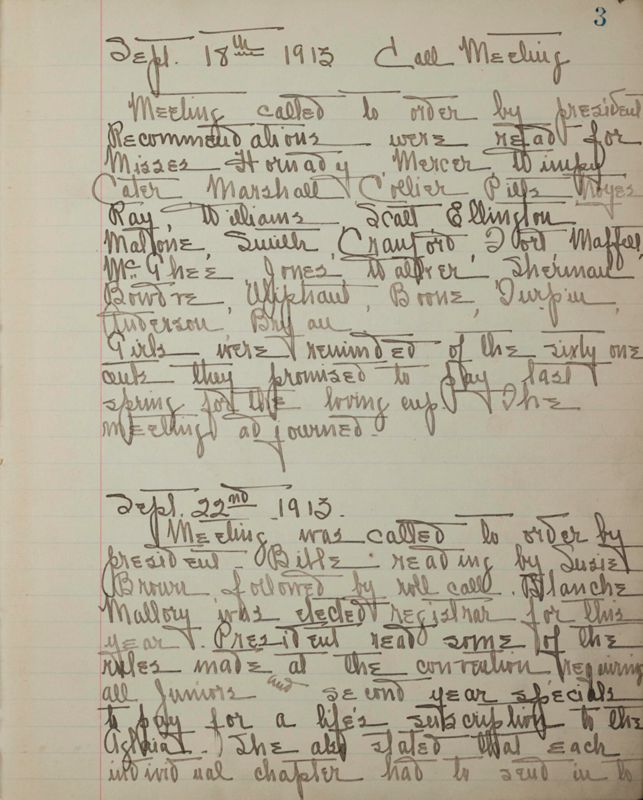 3
Sept. 18th 1913 Call Meeting
Meeting called to order by president
Recommendations were read for
Misses Hornady, Mercer, Wimpy
Cater Marshall Collier Pitts Noyes
Ray, Williams Scalt Ellington
Mallone, Smith, Cranford, Ford, Maffett,
McGhee Jones, Walker, Sherman
Bowdre, Oliphant, Boone, Turpin,
Anderson, Bryan
Girls were reminded of the sixty one
cents they promised to pay last
spring for the loving cup. The
meeting adjourned.
Sept. 22nd 1913.
Meeting was called to order by
president - Bible reading by Susie
Brown followed by roll call. Blanche
Mallory was elected registrar for this
year. President read some of the
rules made at the convention requiring
all Juniors and second year specials
to pay for a life's subscription to the
Aglaia. She also stated that each
individual chapter had to send in to